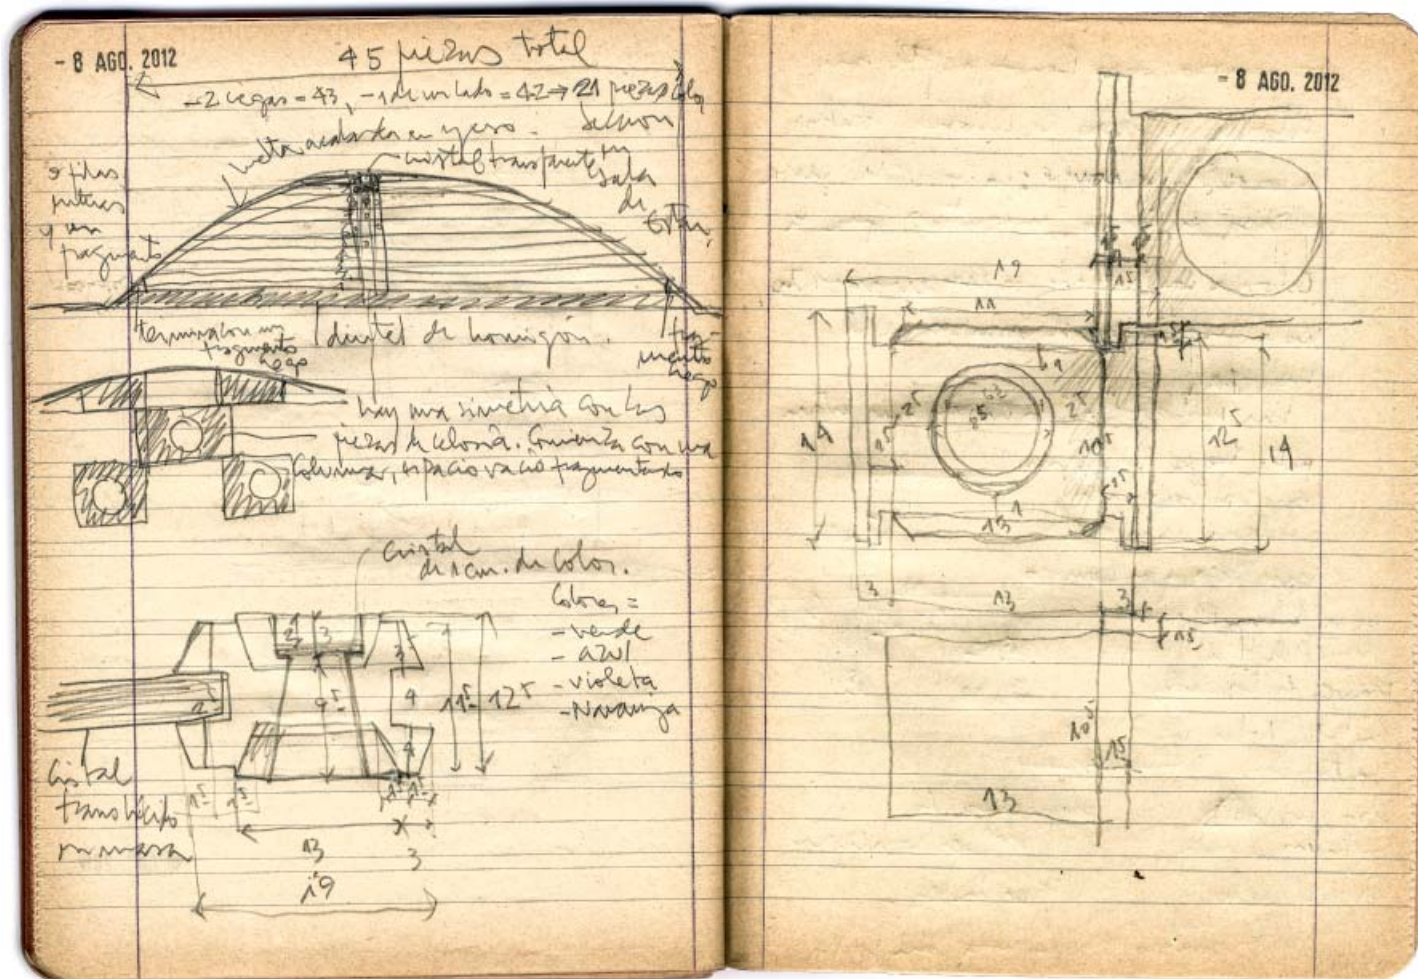 - 8 AGO. 2012
45 piezas total
- 2 cegas = 43, - 1 de un lado = 42 → 21 piezas color
vuelta acabada en yeso.
cristal transparente
sala
de
Estar.
y un
fragmento
termina con un
fragmento
hego
dintel de hormigón.
frag-
mento
hego
hay una simetría con las
piezas de celosía. Comienza con una
columna, espacio vacío fragmentado
cristal
de 1 cm. de color.
Colores =
- verde
- azul
- violeta
- Naranja
2
3
3
9⁵
4
4
11⁵
12⁵
2
Cristal
translúcido
en masa
1⁵
1⁵
1⁵
1⁵
13
3
19
- 8 AGO. 2012
19
1⁵
11
1⁵
9
14
2⁵
1⁵
65
62
2⁵
10⁵
12⁵
14
1⁵
1
13
3
13
3
1⁵
10⁵
1⁵
13